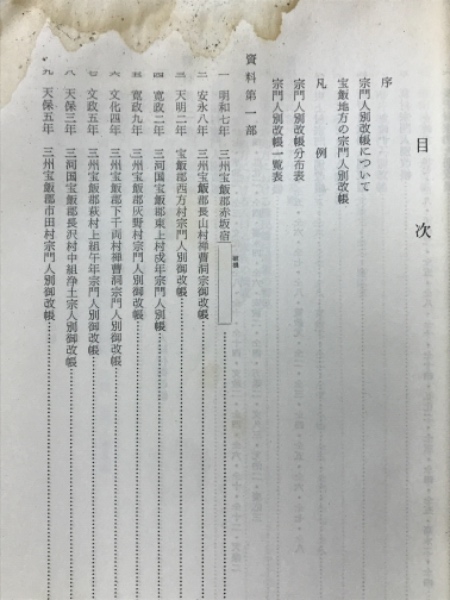 目次
序
宗門人別改帳について
宝飯地方の宗門人別改帳
凡例
宗門人別改帳分布表
宗門人別改帳一覧表
資料第一部
一 明和七年 三州宝飯郡赤坂宿
二 安永八年 三州宝飯郡長山村禅曹洞宗御改帳
三 天明二年 宝飯郡西方村宗門人別御改帳
四 寛政二年 三河国宝飯郡東上村戌年宗門人別御改帳
五 寛政九年 三州宝飯郡灰野村宗門人別御改帳
六 文化四年 三州宝飯郡下千両村禅曹洞宗門人別御改帳
七 文政五年 三州宝飯郡萩村上組午年宗門人別御改帳
八 天保三年 三河国宝飯郡長沢村中組浄土宗人別御改帳
九 天保五年 三州宝飯郡市田村宗門人別御改帳